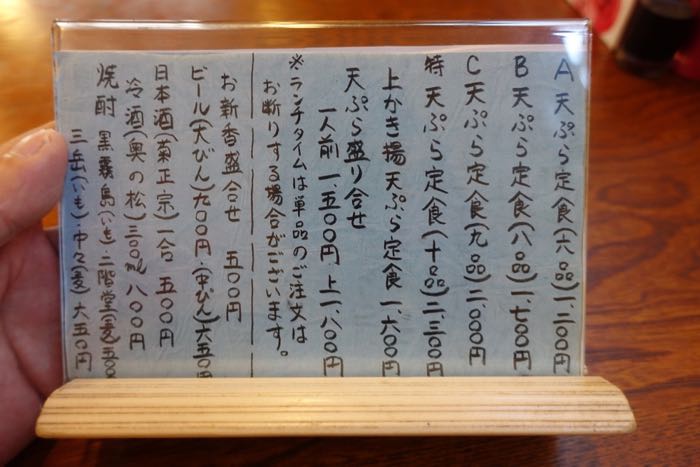 A 天ぷら定食(六品)一、二〇〇円
B 天ぷら定食(八品)一、七〇〇円
C 天ぷら定食(九品)二、〇〇〇円
特 天ぷら定食(十品)二、三〇〇円
上かき揚 天ぷら定食 一、六〇〇円
天ぷら盛り合せ
一人前 一、五〇〇円 上一、八〇〇円
※ランチタイムは単品のご注文は
お断りする場合がございます。
お新香盛合せ 五〇〇円
ビール(大びん)九〇〇円・(中びん)六五〇円
日本酒(菊正宗)一合 五〇〇円
冷酒(奥の松)三〇〇ml 八〇〇円
焼酎 黒霧島(いも)・二階堂(麦)五〇〇円
三岳(いも)・中々(麦)六五〇円